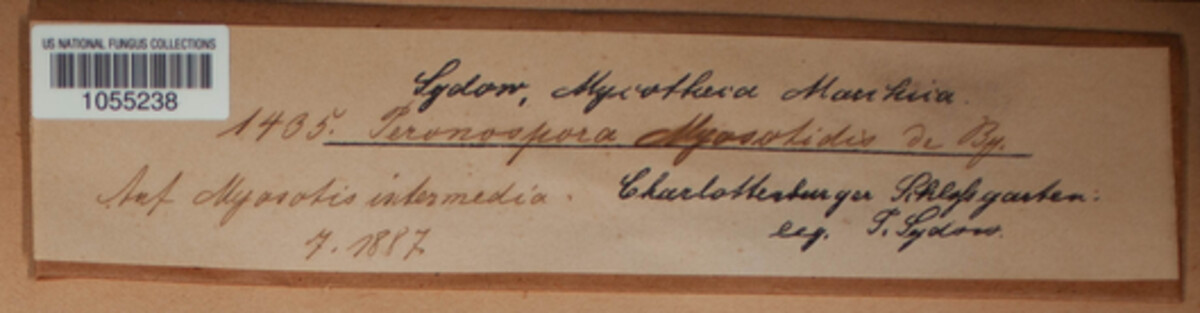 US NATIONAL FUNGUS COLLECTIONS
1055238
Sydow, Mycotheca Marchica.
1435. Peronospora Myosotidis de By.
Auf Myosotis intermedia.
7. 1887
Charlottenburger Schloßgarten:
leg. P. Sydow.